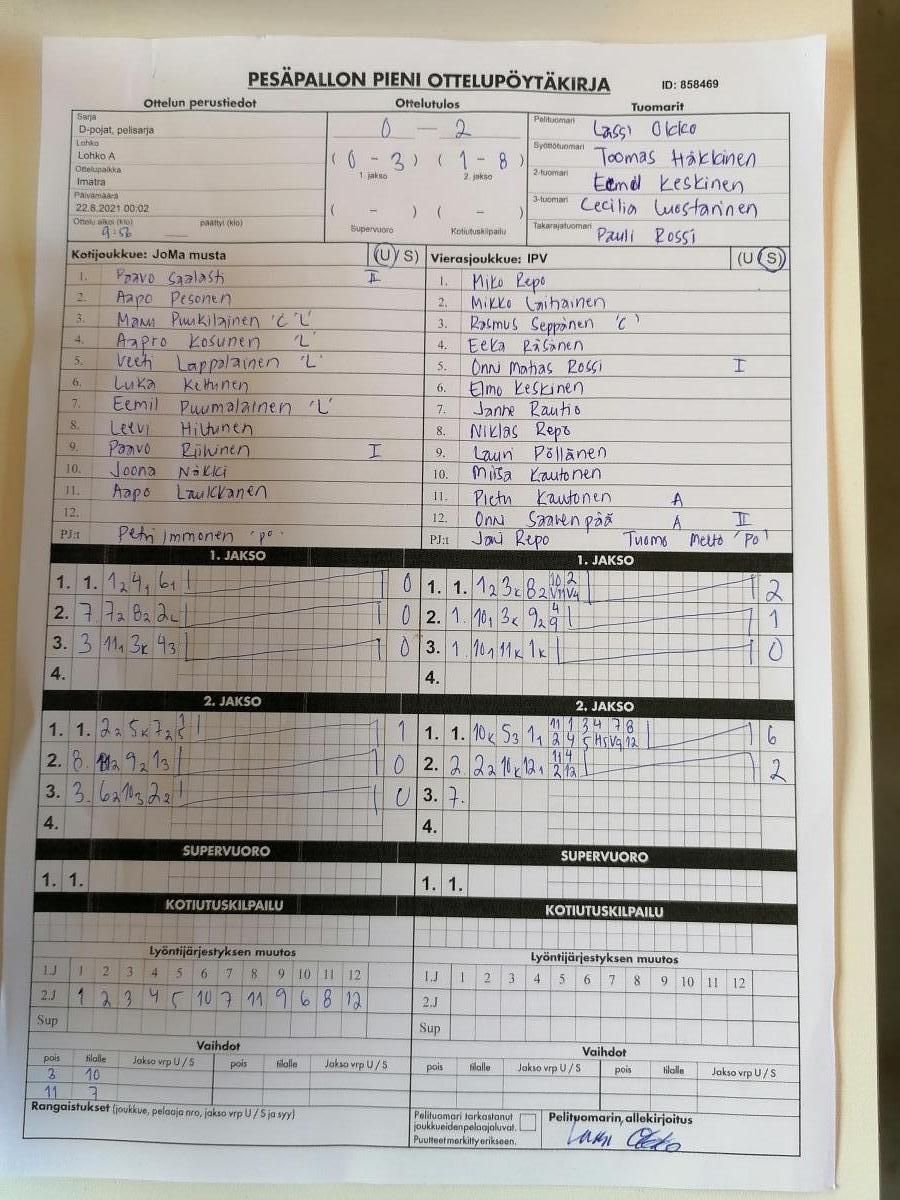 PESÄPALLON PIENI OTTELUPÖYTÄKIRJA ID: 858469
Ottelun perustiedot Ottelutulos Tuomarit
Sarja
D-pojat, pelisarja
Lohko
Lohko A
Ottelupaikka
Imatra
Päivämäärä
22.8.2021 00:02
Ottelu alkoi (klo) päättyi (klo)
9:56
0 - 2
(0 - 3) (1 - 8)
1. jakso 2. jakso
( - ) ( - )
Supervuoro Kotiutuskilpailu
Pelituomari Lassi Okko
Syöttötuomari Toomas Häkkinen
2-tuomari Eemil Keskinen
3-tuomari Cecilia Luostarinen
Takarajatuomari Pauli Rossi
Kotijoukkue: JoMa musta (U/S)
1. Paavo Saalasti II
2. Aapo Pesonen
3. Manu Puukilainen 'C' 'L'
4. Aapro Kosunen 'L'
5. Veeti Lappalainen 'L'
6. Luka Kettunen
7. Eemil Puumalainen 'L'
8. Leevi Hiltunen
9. Paavo Riihinen I
10. Joona Näkki
11. Aapo Laukkanen
12.
PJ:t Petri Immonen 'PO'
Vierasjoukkue: IPV (U/S)
1. Miko Repo
2. Mikko Laihainen
3. Rasmus Seppänen 'C'
4. Eeka Räsänen
5. Onni Matias Rossi I
6. Elmo Keskinen
7. Janne Rautio
8. Niklas Repo
9. Lauri Pöllänen
10. Miisa Kautonen
11. Pietu Kautonen A
12. Onni Saarenpää A II
PJ:t Jani Repo Tuomo Metto 'PO'
1. JAKSO 1. JAKSO
1. 1. 1₂ 4₁ 6₁ 0
2. 7 7₂ 8₂ 2ₖ 0
3. 3 11₁ 3ₖ 4₃ 0
4.
1. 1. 1₂ 3ₖ 8₂ 2
2. 1. 10₁ 3ₖ 9₂ 4 9 1
3. 1. 10₁ 11ₖ 1ₖ 0
4.
2. JAKSO 2. JAKSO
1. 1. 2₂ 5ₖ 7₂ 1
2. 8. 9₂ 1₃ 0
3. 3. 6₂ 10₃ 2₂ 0
4.
1. 1. 10ₖ 5₃ 1₁ 11 1 3 4 7 8 6
2. 2. 2₂ 10ₖ 12₁ 11 4 2 12 2
3. 7.
4.
SUPERVUORO SUPERVUORO
1. 1. 1. 1.
KOTIUTUSKILPAILU KOTIUTUSKILPAILU
Lyöntijärjestyksen muutos
1.J 1 2 3 4 5 6 7 8 9 10 11 12
2.J 1 2 3 4 5 10 7 11 9 6 8 12
Sup
Lyöntijärjestyksen muutos
1.J 1 2 3 4 5 6 7 8 9 10 11 12
2.J
Sup
Vaihdot
pois tilalle Jakso vrp U / S pois tilalle Jakso vrp U / S
3 10
11 7
Vaihdot
pois tilalle Jakso vrp U / S pois tilalle Jakso vrp U / S
Rangaistukset (joukkue, pelaaja nro, jakso vrp U / S ja syy)
Pelituomari tarkastanut
joukkueiden pelaajaluvat.
Puutteet merkitty erikseen.
Pelituomarin allekirjoitus
Lassi Okko